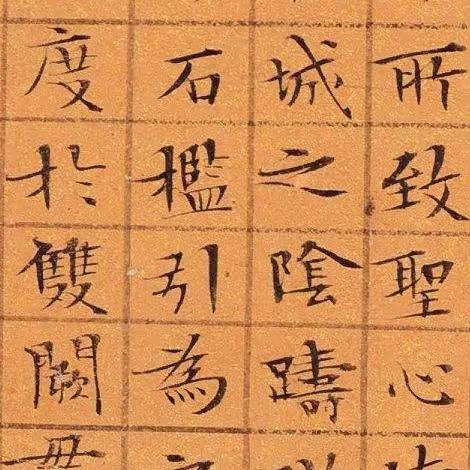 所致聖心
城之陰躊
石檻引為
度於雙闕